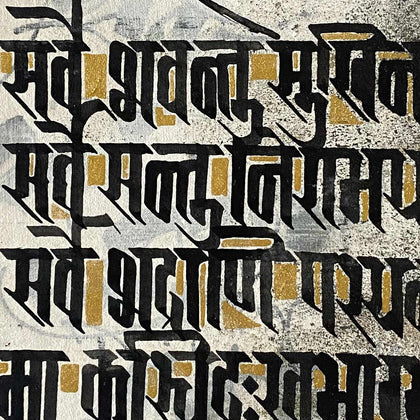 सर्वे भवन्तु सुखिन
सर्वे सन्तु निरामय
सर्वे भद्राणि पश्य
मा कश्चिद्दुःखभाग